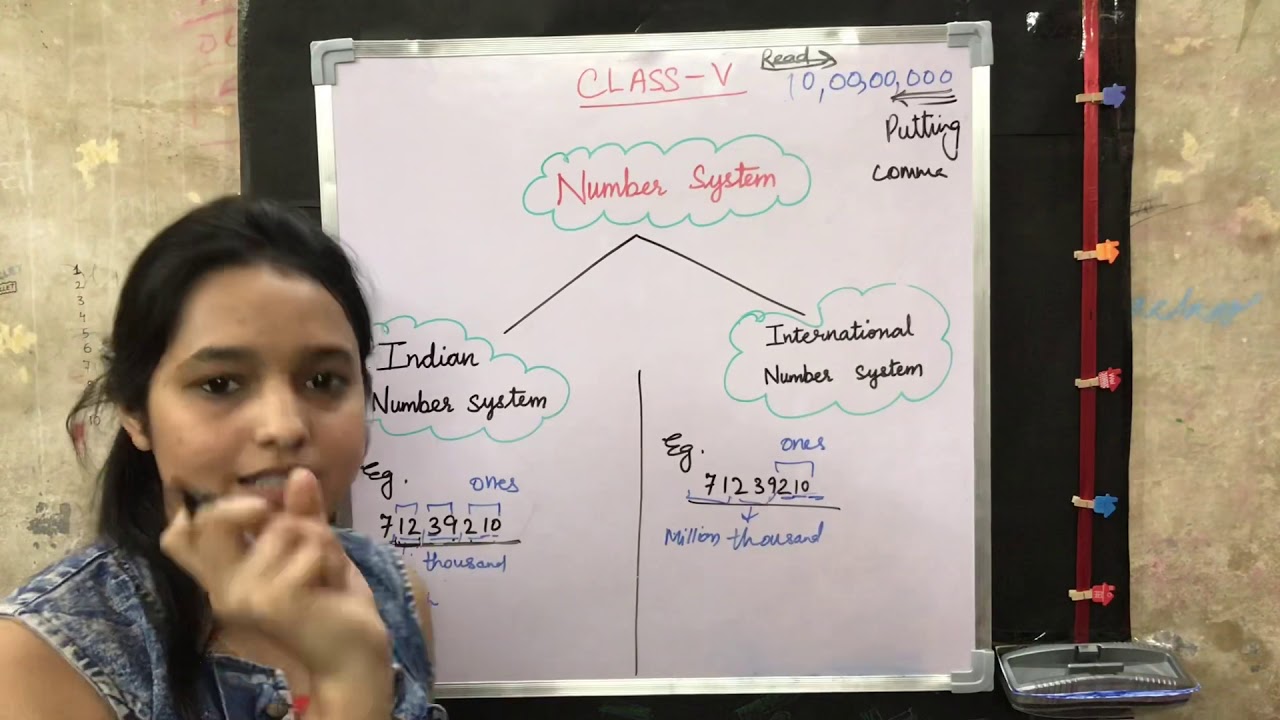 CLASS-V
Read
10,00,00,000
Putting
comma
Number System
Indian
Number System
International
Number System
Eg.
ones
7 12 39 210
thousand
Eg.
ones
7 12 39 210
Million thousand
1
2
3
4
5
6
7
10